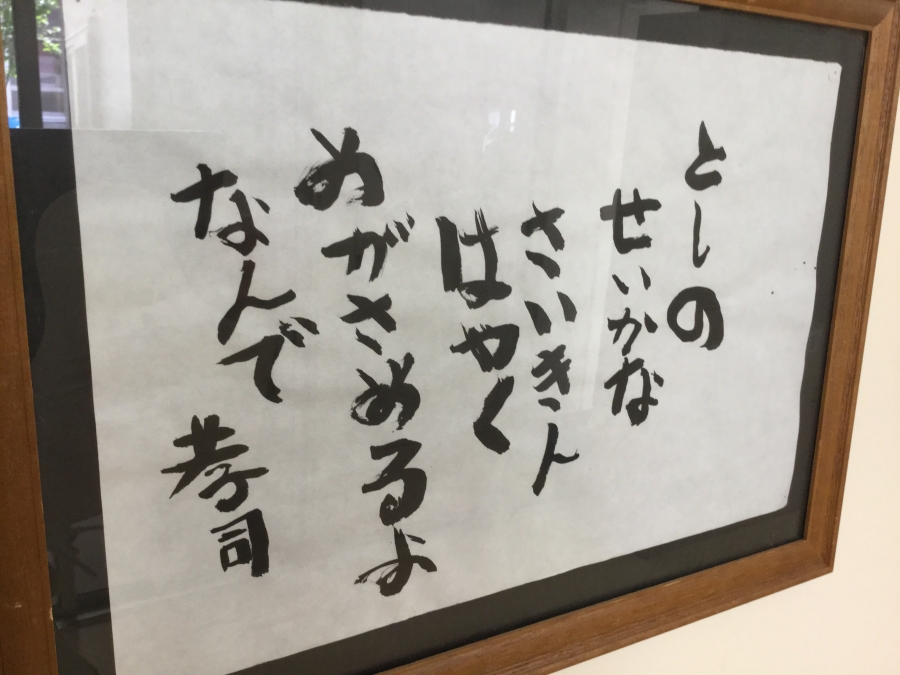 としの
せいかな
さいきん
はやく
めがさめるよ
なんで
孝司